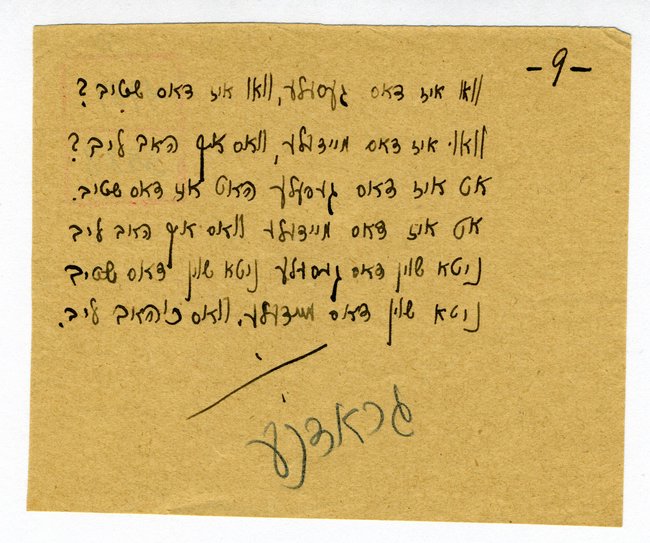 -9-
וואו איז דאס געסעלע, וואו איז דאס שטיב?
וואו איז דאס מיידעלע, וואס איך האב ליב?
אט איז דאס געסעלע האט איז דאס שטיב.
אט איז דאס מיידעלע וואס איך האב ליב
ניטא שוין דאס געסעלע ניטא שוין דאס שטיב
ניטא שוין דאס מיידעלע, וואס כ'יהאב ליב.
גראדנע